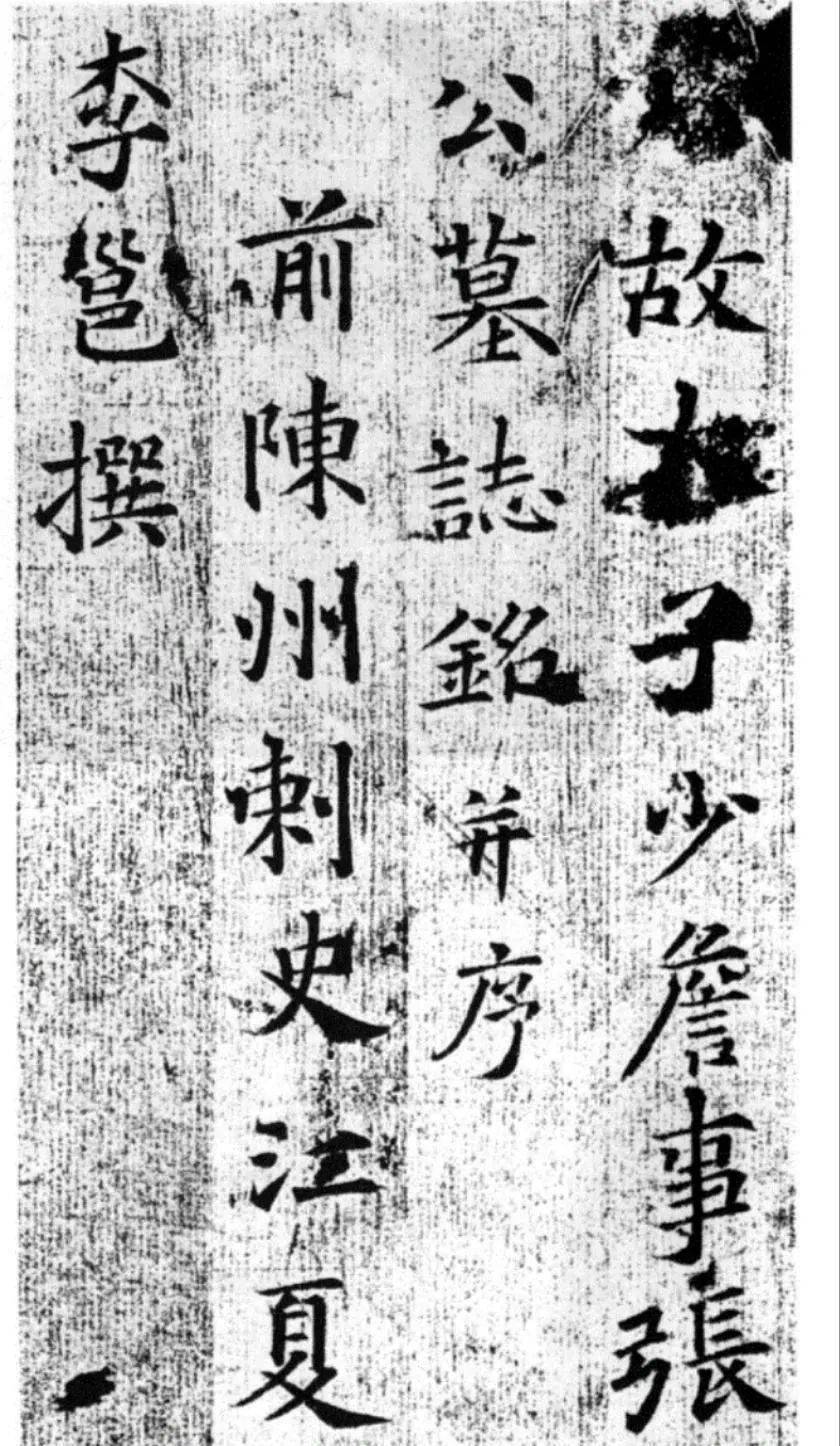 故太子少詹事張
公墓誌銘并序
前陳州刺史江夏
李邕撰